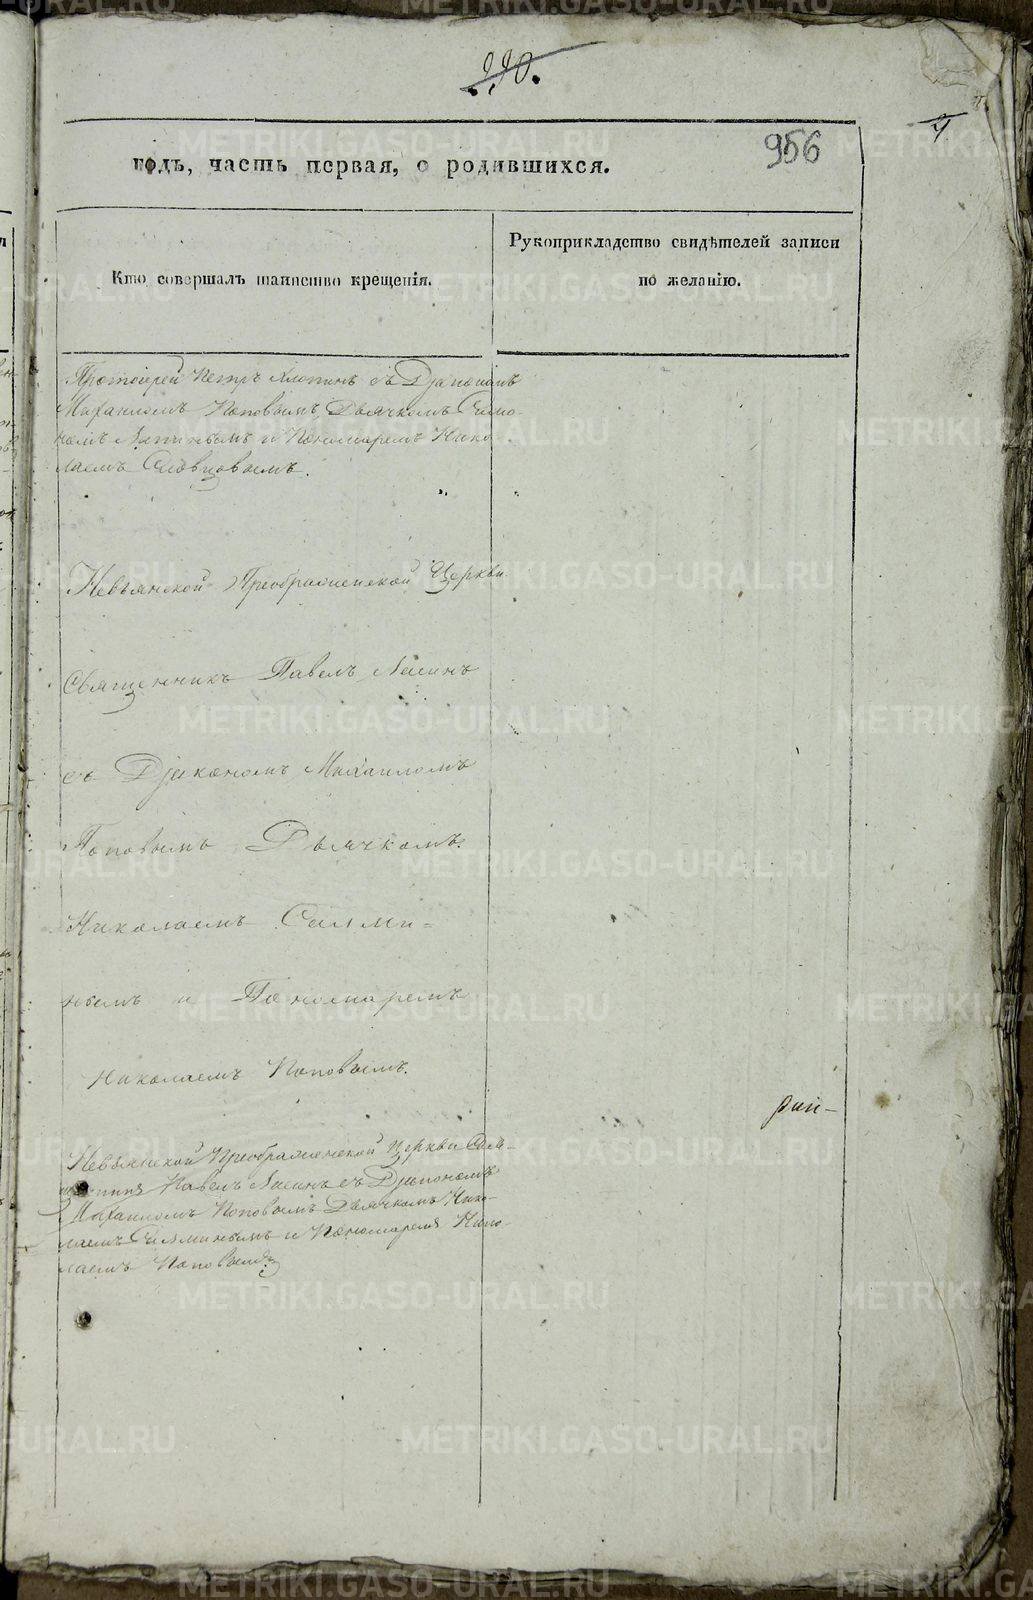 990.
956
годъ, часть первая, о родившихся.
Кто совершалъ таинство крещенія.
Рукоприкладство свидѣтелей записи
по желанію.
Протоіерей Петръ Хлопинъ съ Діакономъ
Михаиломъ Поповымъ, Дьячкомъ
и Пономаремъ Нико
лаемъ Словцовымъ.
Невьянской Преображенской Церкви
Священникъ Павелъ
съ Діакономъ Михаиломъ
Поповымъ Дьячкомъ
Николаемъ Салми-
нымъ и Пономаремъ
Николаемъ Поповымъ.
Невьянской Преображенской Церкви
Павелъ съ Діакономъ
Михаиломъ Поповымъ Дьячкомъ Нико-
лаемъ Салминымъ и Пономаремъ Нико-
лаемъ Поповымъ
METRIKI.GASO-URAL.RU